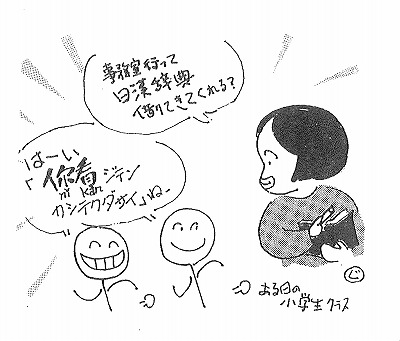 事務室行って
日漢辞典
借りてきてくれる？
はーい
「你看ジテン
nǐ kàn
カシテクダサイ」ね〜
ある日の
小学生クラス